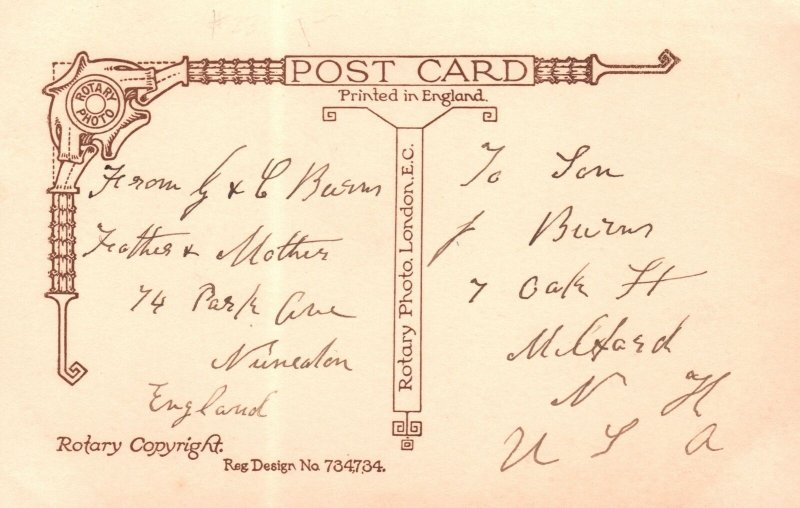 POST CARD
Printed in England.
ROTARY PHOTO
From G & C Burns
Father & Mother
74 Park Ave
Nuneaton
England
Rotary Photo, London, E.C.
To Son
J Burns
7 Oak St
Milford
N H
U S A
Rotary Copyright.
Reg Design No. 734,734.